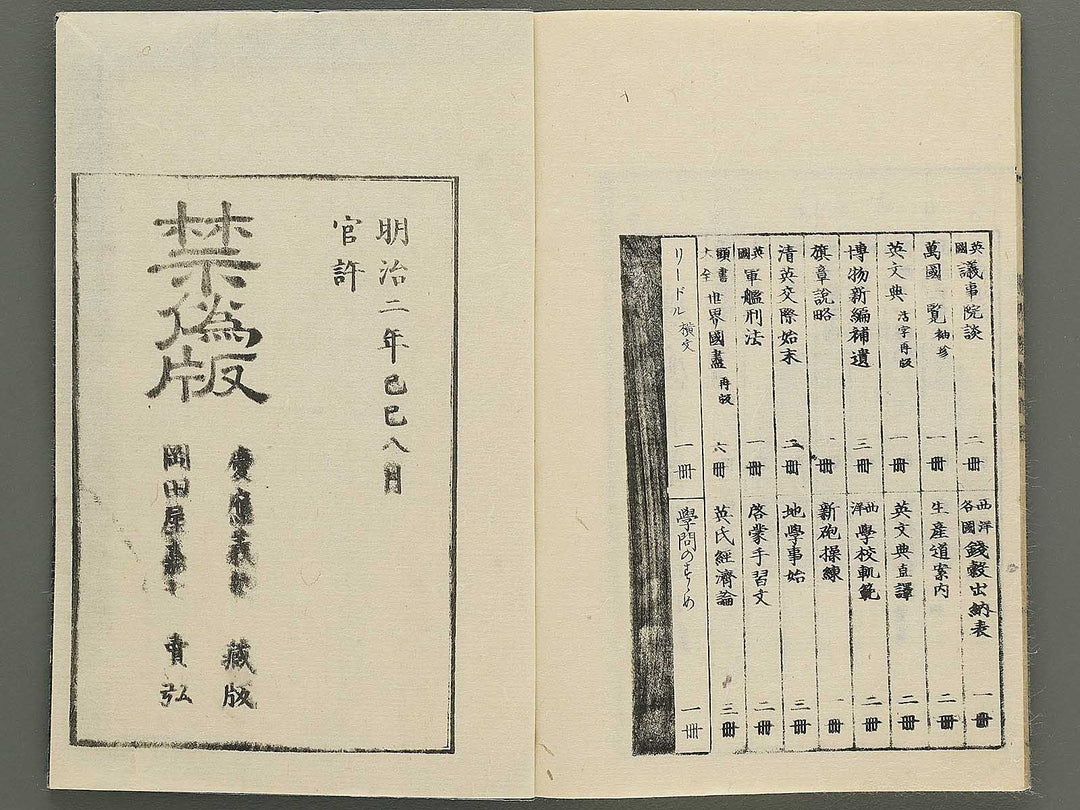 英國議事院談 二冊
萬國 覧 袖珍 一冊
英文典 活字再版 一冊
博物新編補遺 三冊
旗章説略 一冊
清英交際始末 冊
英國軍艦刑法 一冊
頭書大全世界國盡 再版 六冊
リードル 横文 一冊
西洋各國錢穀出納表 一冊
生産道案内 二冊
英文典直譯 二冊
西洋學校軌範 二冊
新砲操練 一冊
地學事始 三冊
啓蒙手習文 二冊
英氏經濟論 三冊
學問のすゝめ 一冊
明治二年己巳八月
官許
禁偽版
慶應義塾 藏版
岡田屋嘉 賣弘